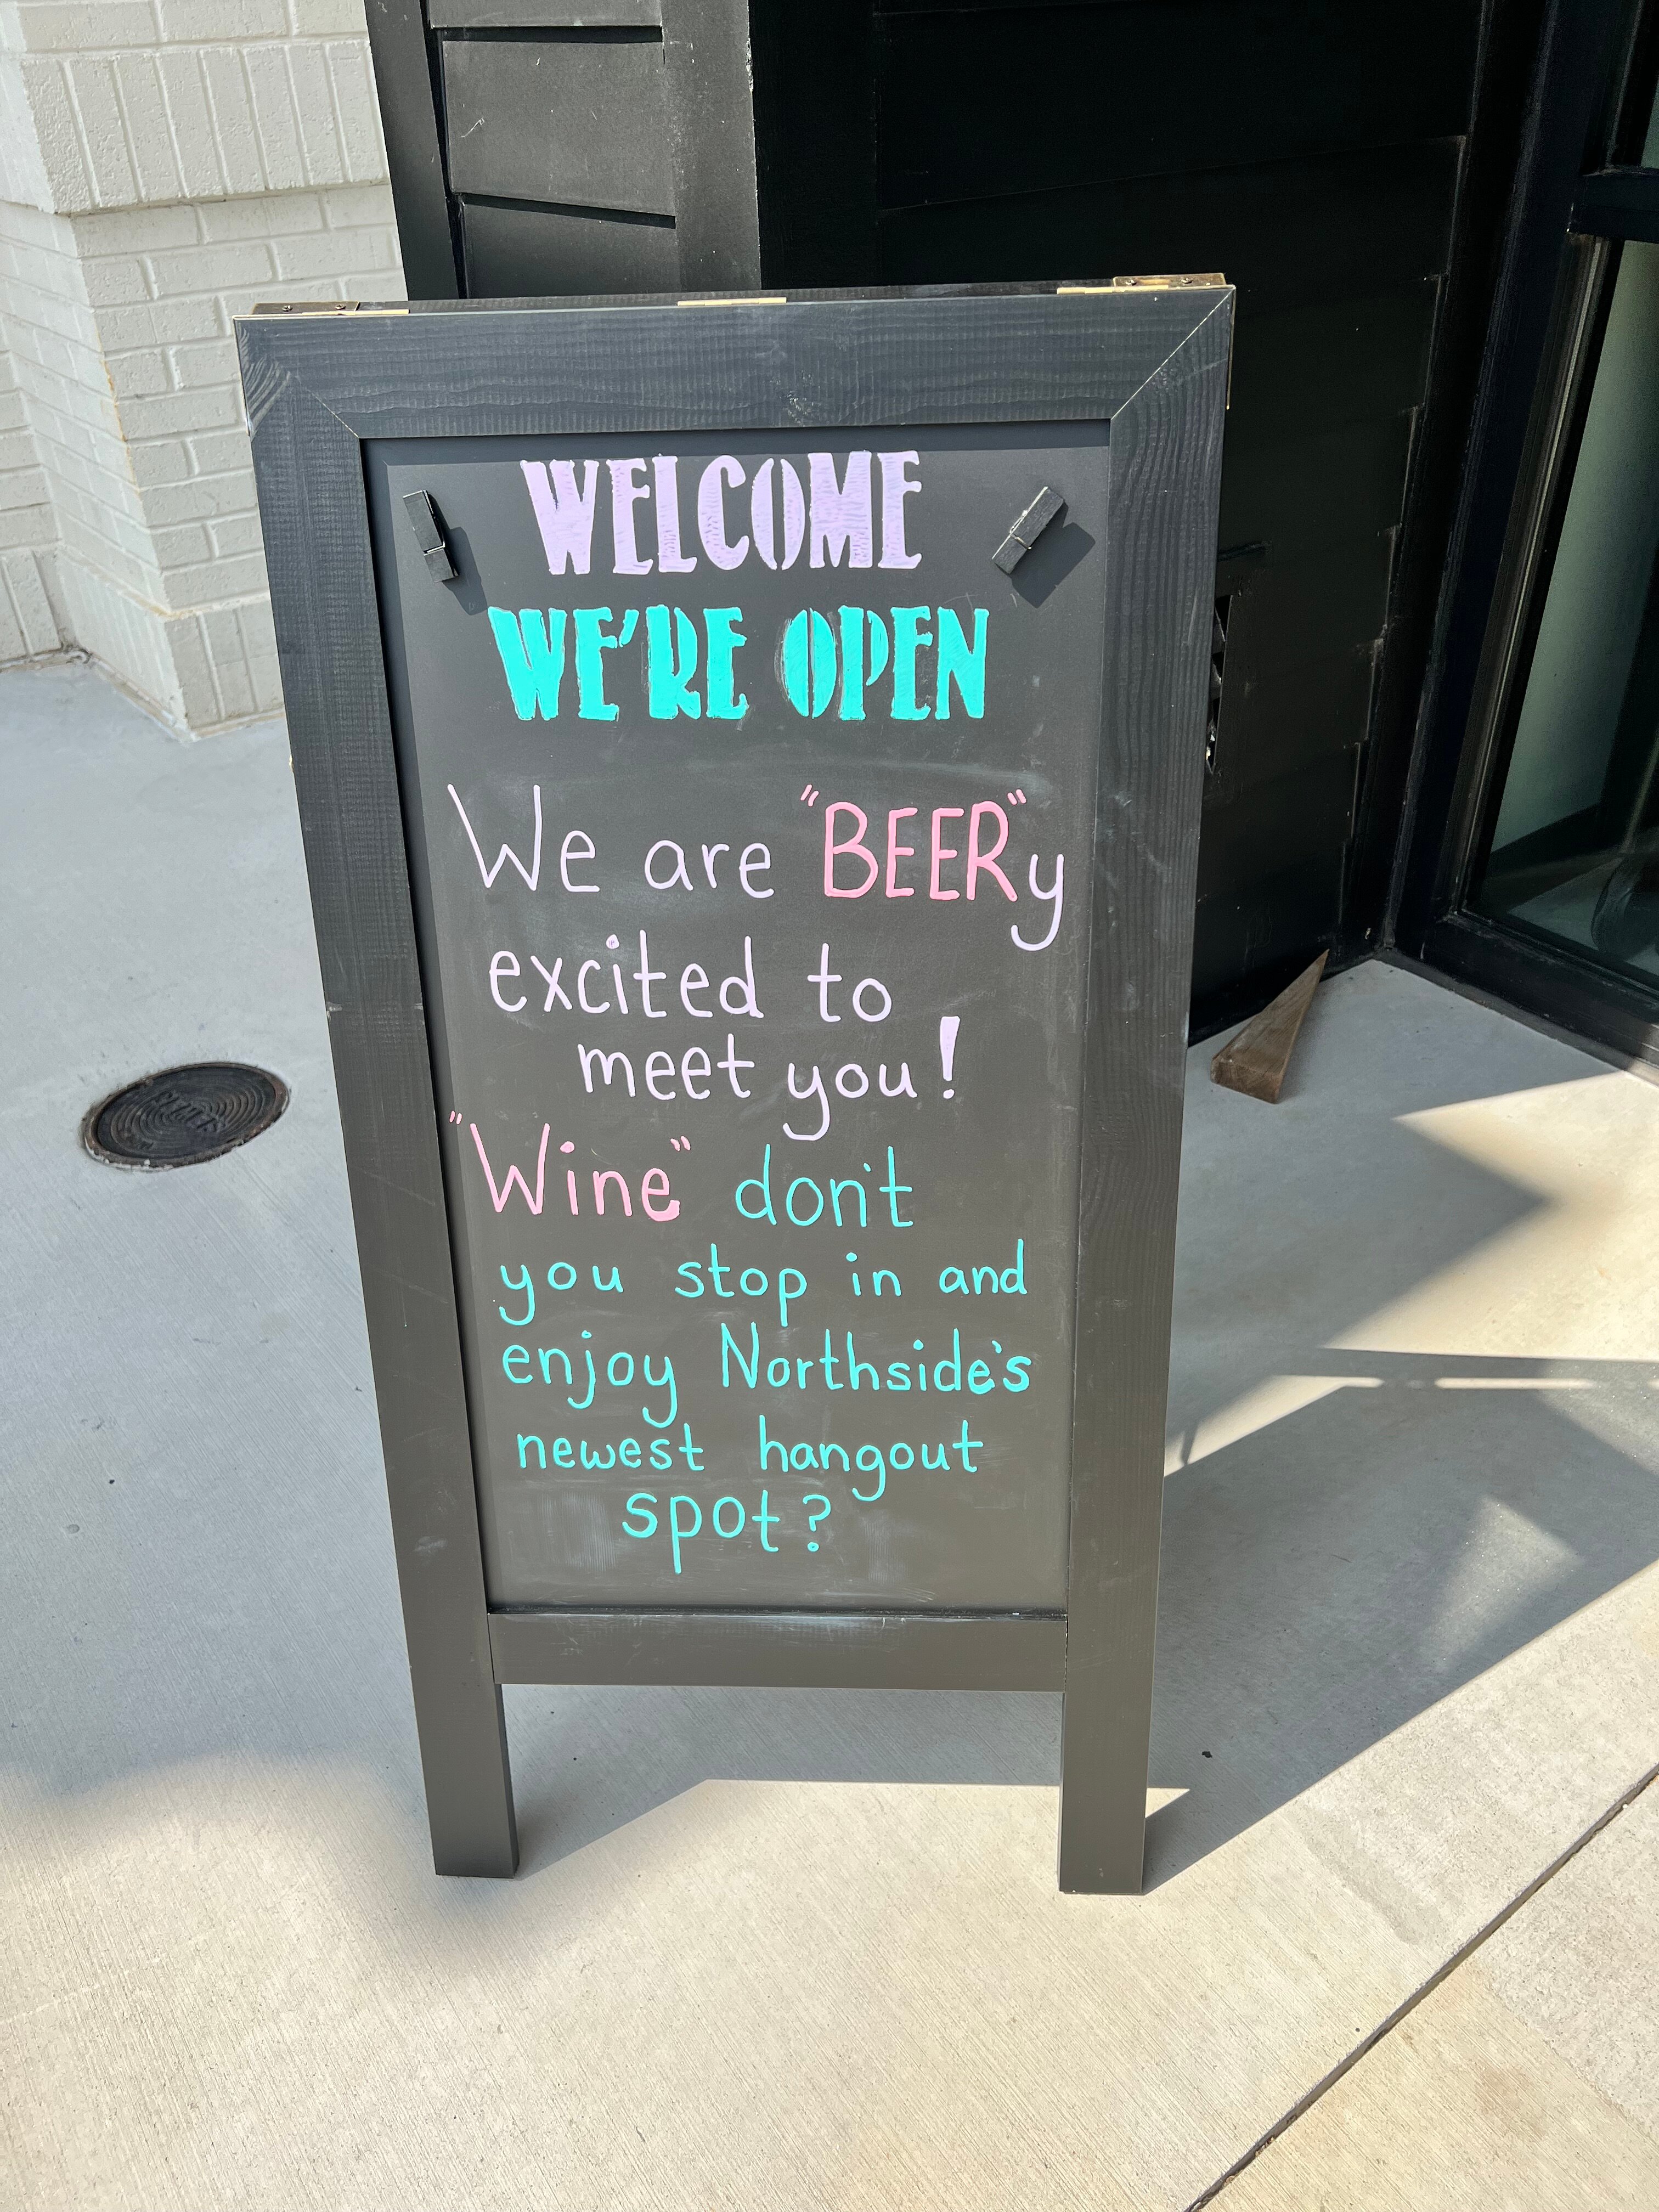 WELCOME
WE'RE OPEN
We are "BEER"y
excited to
meet you!
"Wine" don't
you stop in and
enjoy Northside's
newest hangout
spot?